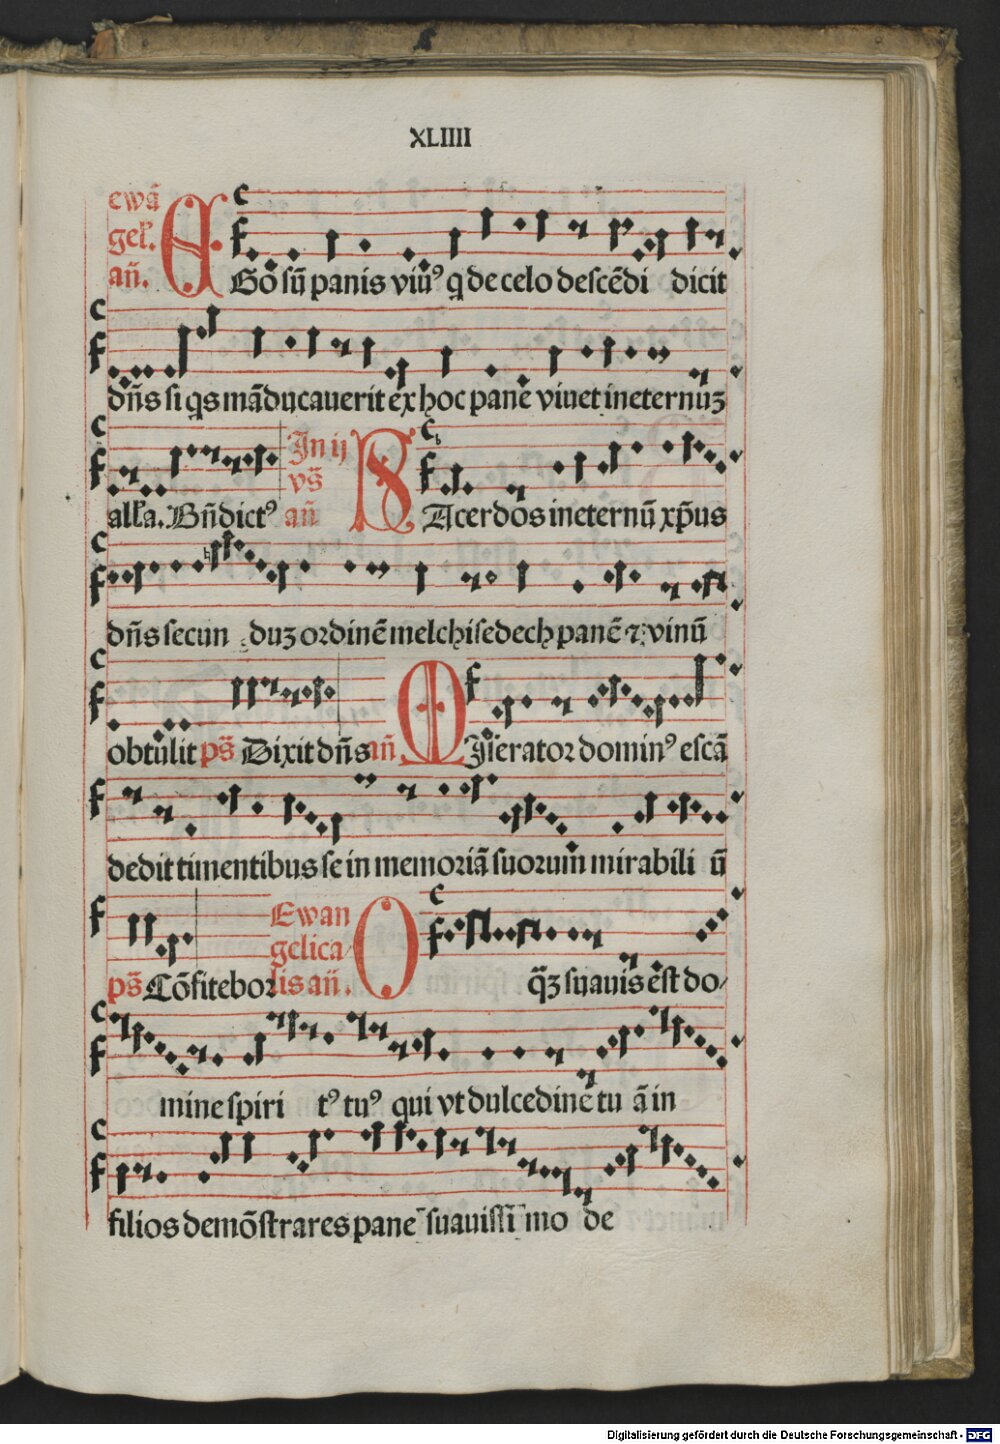 XLIIII
ewā
gel̄.
an̄.
EGo sū panis viuꝰ q de celo descēdi dicit
dn̄s si qs māducauerit ex hoc pane viuet in eternuꝫ
all̄a. Bn̄dictꝰ
In ij
vs̄
an̄
SAcerdos in eternū xp̄us
dn̄s secun duꝫ ordinē melchisedech panē ⁊ vinū
obtulit ps̄ Dixit dn̄s an̄ MIserator dominꝰ escā
dedit timentibus se in memoriā suorum mirabili ū
ps̄ Cōfitebor
Ewan
gelica/
lis an̄.
O q̄ꝫ suauis est do/
mine spiri tꝰ tuꝰ qui vt dulcedinē tu ā in
filios demōstrares pane suauissi mo de
Digitalisierung gefördert durch die Deutsche Forschungsgemeinschaft - DFG